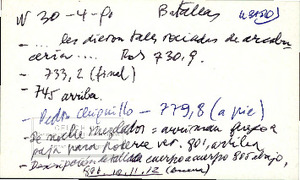 N 30-4-80 Batallas
- .... les dieron tales rociadas de arcabu
cería .... Ros 730,9.
- 733,2 (final)
- 745 arriba.
- Pedro Chiquillo - 779,8 (a pie)
- De noche mezclados - arriman fuego a
paja para poderse ver. 801, arriba
- Descripción detallada cuerpo a cuerpo 805 abajo,
10, 11, 12